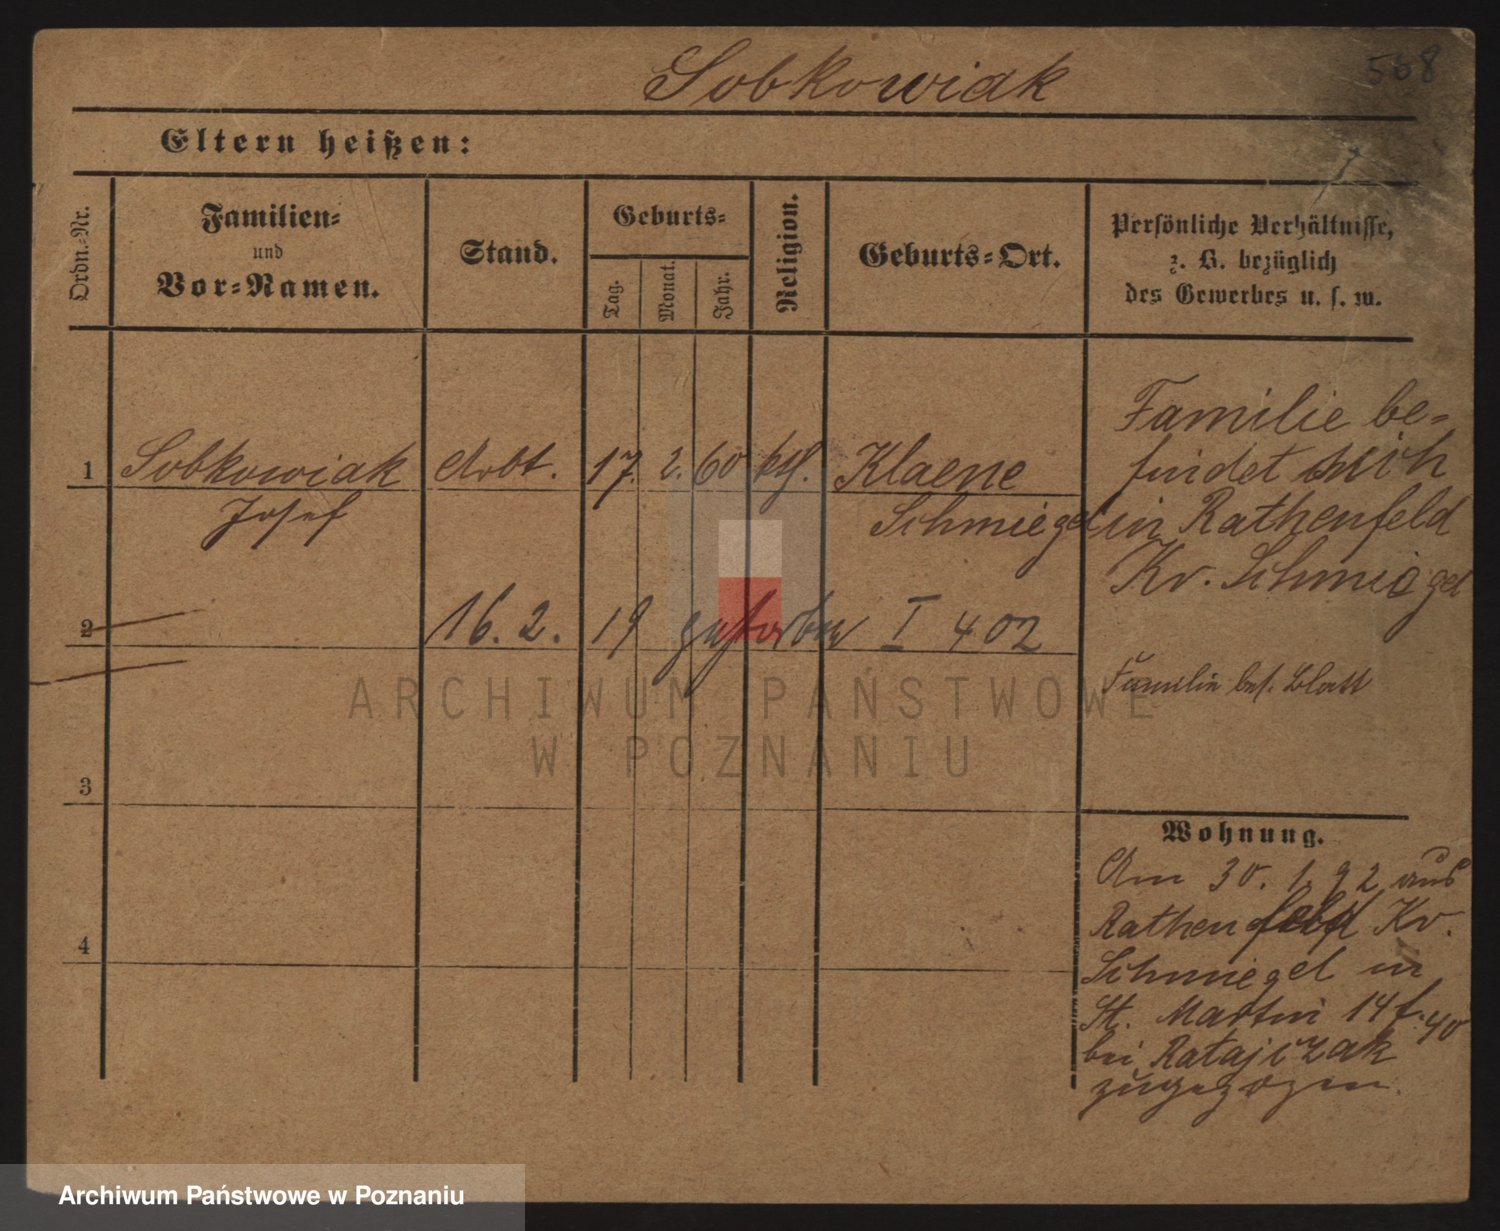 Sobkowiak
568
Eltern heißen:
Ordn.-Nr.
Familien-
und
Vor-Namen.
Stand.
Geburts-
Tag.
Monat.
Jahr.
Religion.
Geburts-Ort.
Persönliche Verhältnisse,
z. B. bezüglich
des Gewerbes u. s. w.
1 Sobkowiak Arbt. 17. 2. 60 kth. Klaene
Josef Schmiegel
Familie be-
findet sich
in Rathenfeld
Kr. Schmiegel
2 16. 2. 19 gestorben I 402
Familie bes. Blatt
ARCHIWUM PAŃSTWOWE
W POZNANIU
3
4
Wohnung.
Am 30. 1. 92 aus
Rathenfeld Kr.
Schmiegel in
St. Martin 14 f. 40
bei Ratajczak
zugezogen.
Archiwum Państwowe w Poznaniu